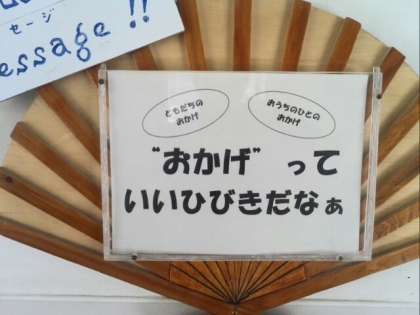 セージ
essage !!
ともだちの
おかげ
おうちのひとの
おかげ
"おかげ" って
いいひびきだなぁ